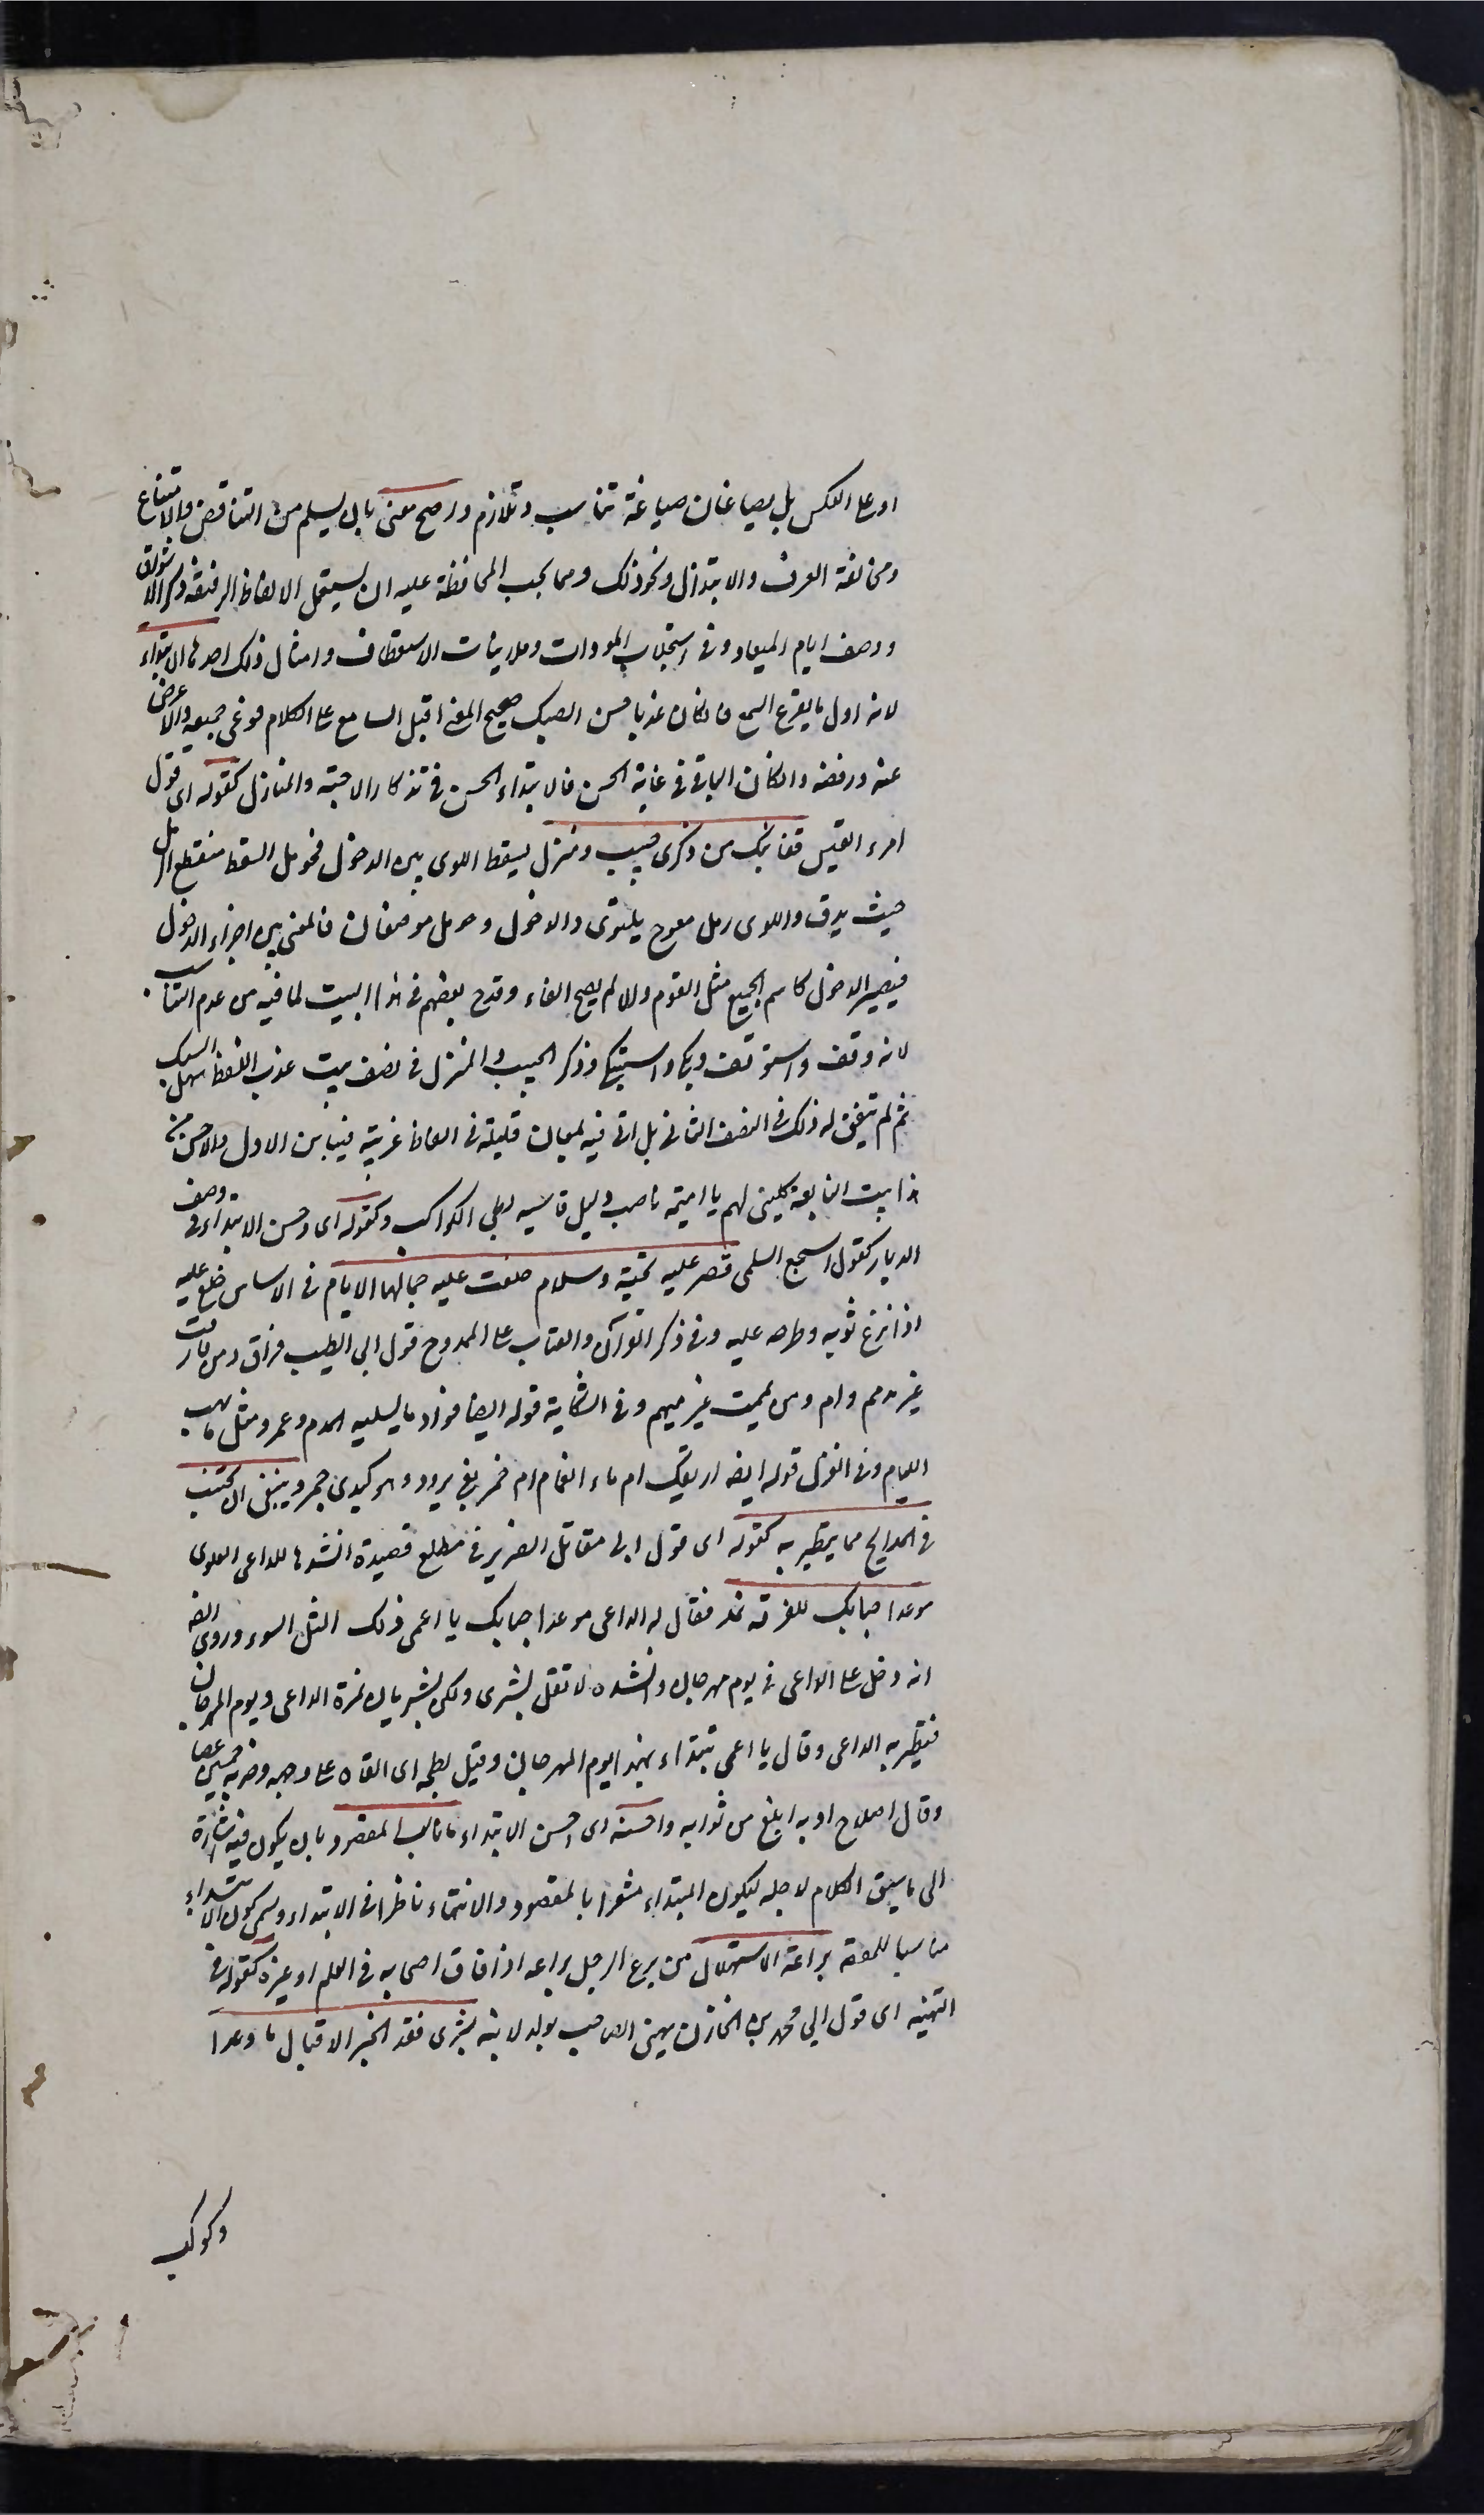 او على العكس بل يصاغان صياغة تناسب وتلازم واصح معنى بان يسلم من التناقض والامتناع
ومخالفة العرف والابتذال ونحو ذلك ومما يجب المحافظة عليه ان يستعمل الالفاظ الرقيقة في ذكر الاشواق
ووصف ايام البعاد وفي استجلاب المودات وملاينات الاستعطاف وامثال ذلك احدها الابتداء
لانه اول ما يقرع السمع فان كان عذبا حسن السبك صحيح المعنى اقبل السامع على الكلام فوعى جميعه والا اعرض
عنه ورفضه وان كان الباقي في غاية الحسن فالابتداء الحسن في تذكار الاحبة والمنازل كقوله اى قول
امرء القيس قفا نبك من ذكرى حبيب ومنزل بسقط اللوى بين الدخول فحومل السقط منقطع الرمل
حيث يدق واللوى رمل معوج يلتوى والدخول وحومل موضعان فالمعنى بين اجزاء الدخول
فيصير الدخول كاسم الجمع مثل القوم والا لم يصح الفاء وقدح بعضهم في هذا البيت لما فيه من عدم التناسب
لانه وقف واستوقف وبكى واستبكى وذكر الحبيب والمنزل في نصف بيت عذب اللفظ سهل السبك
ثم لم يتفق له ذلك في النصف الثاني بل اتى فيه بمعان قليلة في الفاظ غريبة فباين الاول والاحسن من
هذا بيت النابغة كلينى لهم يا اميمة ناصب وليل اقاسيه بطى الكواكب وكقوله اى وحسن الابتداء في وصف
الديار كقول اشجع السلمى قصر عليه تحية وسلام خلعت عليه جمالها الايام في الاساس خلع عليه
اذا نزع ثوبه وطرحه عليه وفي ذكر الفراق والعتاب على الممدوح قول ابي الطيب فراق ومن فارقت
غير مذمم وام ومن يممت غير ميمم وفي الشكاية قوله ايضا فؤاد ما يسليه المدام وعمر مثل ما يهب
اللئام وفي الغزل قوله ايضا اريقك ام ماء الغمام ام خمر بفى برود وهو في كبدى جمر وينبغى ان يجتنب
في المدايح مما يتطير به كقوله اى قول ابن مقاتل الضرير في مطلع قصيدة انشدها للداعى العلوى
موعد احبابك للفرقة غد فقال له الداعى موعد احبابك يا اعمى ولك المثل السوء وروى ايضا
انه دخل على الداعى في يوم مهرجان وانشده لا تقل بشرى ولكن بشريان غرة الداعى ويوم المهرجان
فتطير به الداعى وقال يا اعمى تبتداء بهذا يوم المهرجان وقيل بطحه اى القاه على وجهه وضربه خمسين عصا
وقال اصلاح ادبه ابلغ من ثوابه واحسنه اى احسن الابتداء ما ناسب المقصود بان يكون فيه اشارة
الى ما سيق الكلام لاجله ليكون المبتداء مشعرا بالمقصود والانتهاء ناظرا في الابتداء ويسمى كون الابتداء
مناسبا للمقصود براعة الاستهلال من برع الرجل براعه اذا فاق اصحابه في العلم او غيره كقوله في
التهنيه اى قول ابي محمد بن الخازن يهنى الصاحب بولد لابنه بشرى فقد انجز الاقبال ما وعدا
وكوكب